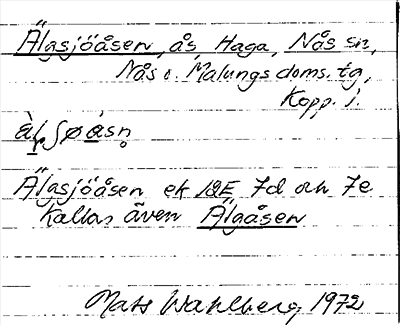 Älgsjöåsen, ås, Haga, Nås sn,
Nås o. Malungs doms. tg,
Kopp. l.
Älgsjöåsen ek 12E 7d och 7e
kallas även Älgåsen
Mats Wahlberg 1972